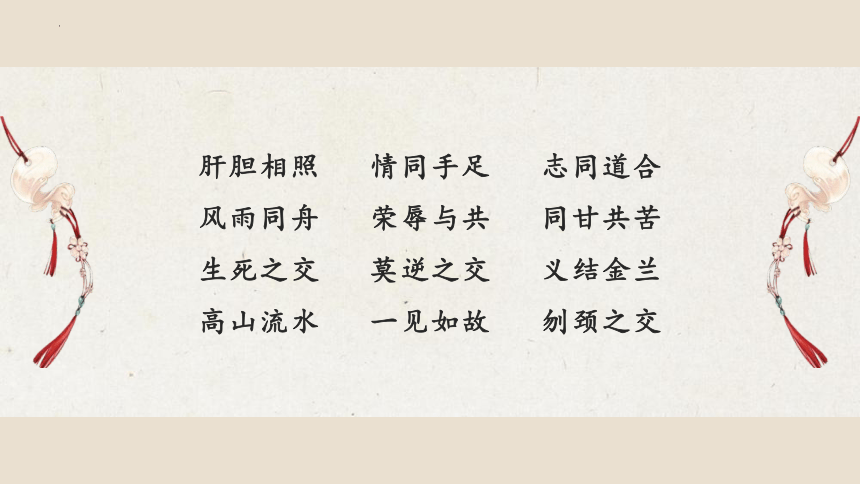 肝胆相照 情同手足 志同道合
风雨同舟 荣辱与共 同甘共苦
生死之交 莫逆之交 义结金兰
高山流水 一见如故 刎颈之交